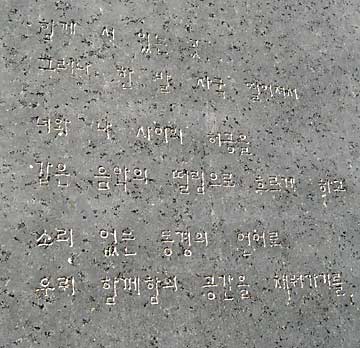 함께 서 있는 것
그러나 한 발 자국 떨어져서
너와 나 사이의 허공을
같은 음악의 떨림으로 흐르게 하고
소리 없는 동경의 언어로
우리 함께함의 공간을 채워가기를